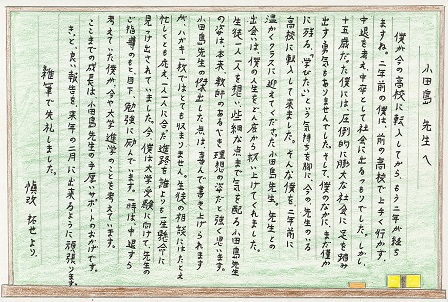 小田島 先生へ
僕が今の高校に転入してから、もう二年が経ち
ますね。二年前の僕は、前の高校で上手く行かず、
中退を考え、中卒として社会に出るつもりでした。しかし、
十五歳だった僕には、圧倒的に膨大な社会に足を踏み
出す勇気もありませんでした。そして、僕のなかに、まだ僅か
に残る、「学びたい」という気持ちを胸に、今の先生のいる
高校に転入して来ました。そんな僕を、二年前に
温かくクラスに迎えてくださった小田島先生。先生との
出会いは、僕の人生をどん底から救い上げてくれました。
生徒一人一人を想い、些細な点まで気を配る小田島先生
の姿は、本来、教師のあるべき理想の姿だと強く思います。
小田島先生の傑出した点は、喜んで書き上げられます
が、ハガキ一枚ではとても収まりません。生徒の相談にはたとえ
忙しくとも応え、一人一人に合った進路を誰よりも一生懸命に
見つけ出されていました。今、僕は大学受験に向けて、先生の
ご指導のもと、目下、勉強に励んでいます。一時は、中退すら
考えていた僕が、今や大学進学のことを考えています。
ここまでの成長は、小田島先生の手厚いサポートのおかげです。
きっと、良い報告を、来年の二月に出来るように頑張ります。
雑筆で失礼しました。
慎改 拓せより